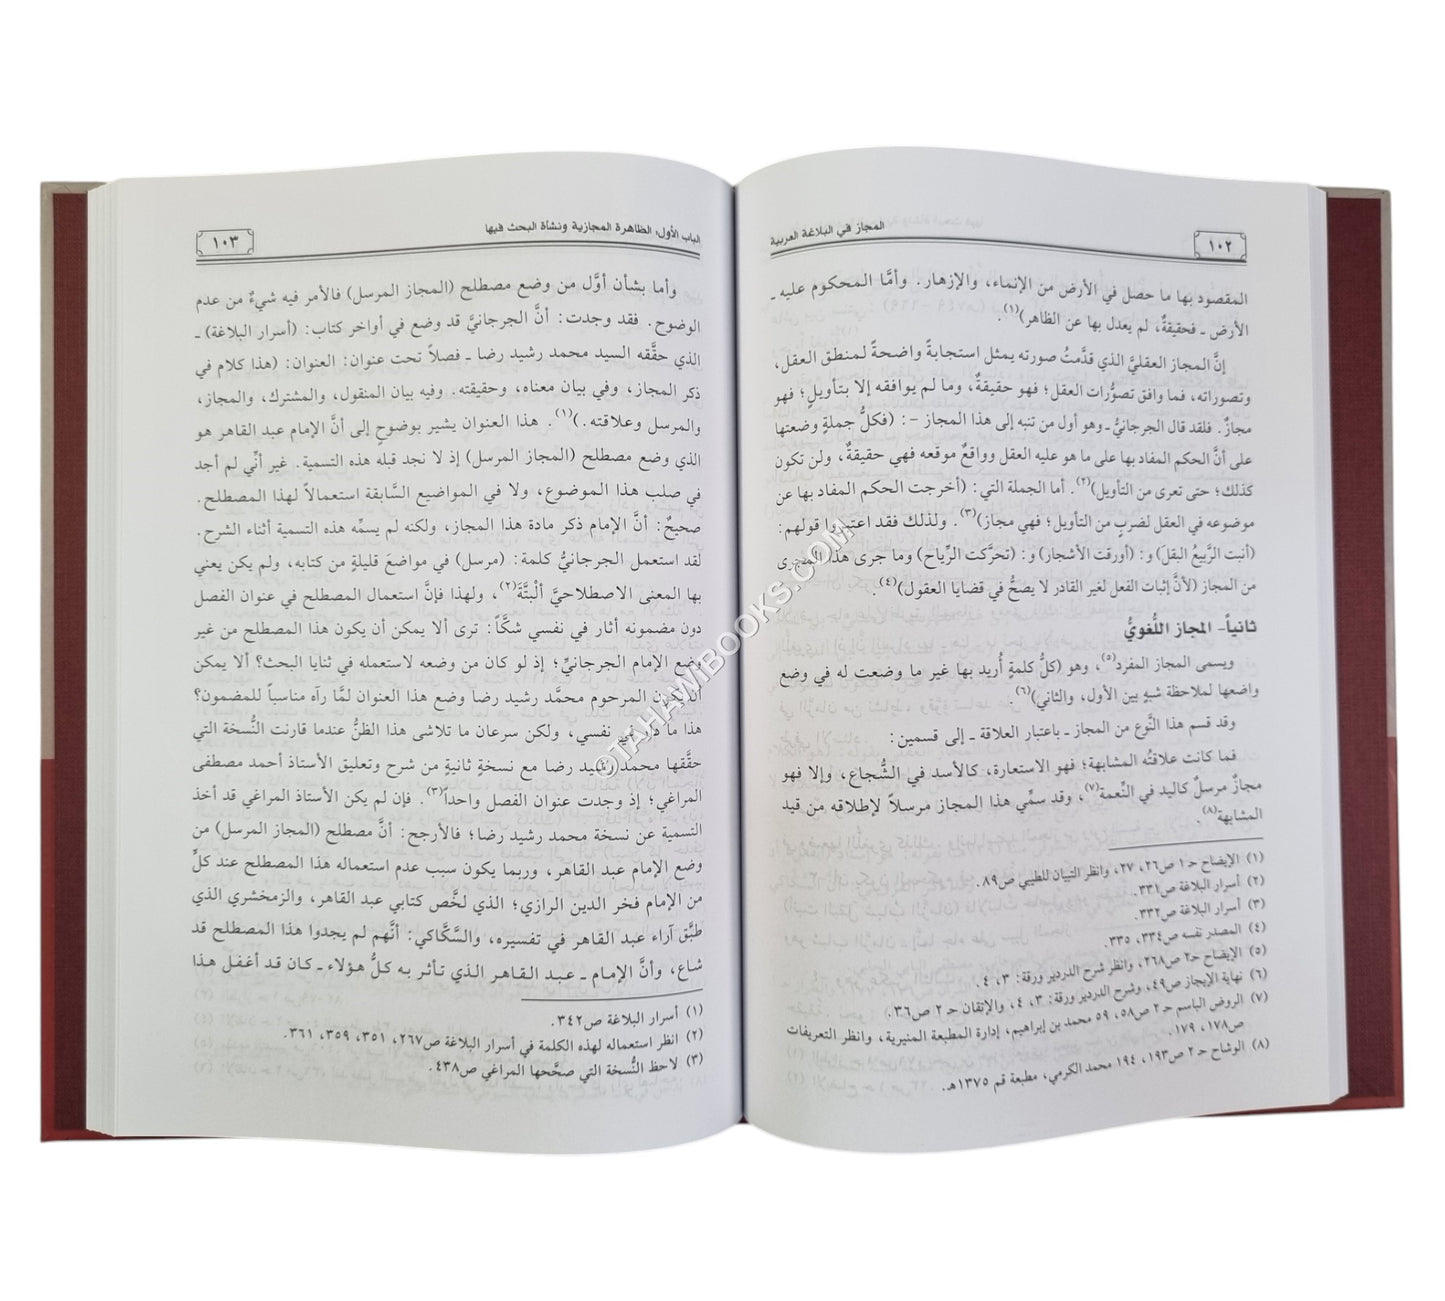 المجاز في البلاغة العربية
١٠٢
المقصود بها ما حصل في الأرض من الإنماء، والإزهار. وأمَّا المحكوم عليه ـ
الأرض ـ فحقيقةٌ، لم يعدل بها عن الظاهر)(١).
إنَّ المجاز العقليَّ الذي قدَّمتُ صورته يمثل استجابةً واضحةً لمنطق العقل،
وتصوراته، فما وافق تصوُّرات العقل؛ فهو حقيقةٌ، وما لم يوافقه إلا بتأويلٍ؛ فهو
مجازٌ. فلقد قال الجرجانيُّ ـ وهو أول من تنبه إلى هذا المجاز -: (فكلُّ جملةٍ وضعتها
على أنَّ الحكم المفاد بها على ما هو عليه العقل وواقعٌ موقعه فهي حقيقةٌ، ولن تكون
كذلك؛ حتى تعرى من التأويل)(٢). أما الجملة التي: (أخرجت الحكم المفاد بها عن
موضوعه في العقل لضربٍ من التأويل؛ فهي مجاز)(٣). ولذلك فقد اعتبروا قولهم:
(أنبت الرَّبيعُ البقلَ) و: (أورقت الأشجار) و: (تحرَّكت الرِّياح) وما جرى هذا المجرى
من المجاز (لأنَّ إثبات الفعل لغير القادر لا يصحُّ في قضايا العقول)(٤).
ثانياً- المجاز اللُّغويُّ
ويسمى المجاز المفرد(٥)، وهو (كلُّ كلمةٍ أُريد بها غير ما وضعت له في وضع
واضعها لملاحظة شبهٍ بين الأول، والثاني)(٦).
وقد قسم هذا النَّوع من المجاز ـ باعتبار العلاقة ـ إلى قسمين:
فما كانت علاقتُه المشابهة؛ فهو الاستعارة، كالأسد في الشُّجاع، وإلا فهو
مجازٌ مرسلٌ كاليد في النِّعمة(٧)، وقد سمِّي هذا المجاز مرسلاً لإطلاقه من قيد
المشابهة(٨).
(١) الإيضاح حـ ١ ص٢٦، ٢٧، وانظر التبيان للطيبي ص٨٩.
(٢) أسرار البلاغة ص٣٣١.
(٣) أسرار البلاغة ص٣٣٢.
(٤) المصدر نفسه ص٣٣٤، ٣٣٥.
(٥) الإيضاح حـ٢ ص٢٦٨، وانظر شرح الدردير ورقة: ٣، ٤.
(٦) نهاية الإيجاز ص٤٩، وشرح الدردير ورقة: ٣، ٤، والإتقان حـ ٢ ص٣٦.
(٧) الروض الباسم حـ ٢ ص٥٨، ٥٩ محمد بن إبراهيم، إدارة المطبعة المنيرية، وانظر التعريفات
ص١٧٨، ١٧٩.
(٨) الوشاح حـ ٢ ص١٩٣، ١٩٤ محمد الكرمي، مطبعة قم ١٣٧٥هـ.
الباب الأول: الظاهرة المجازية ونشأة البحث فيها
١٠٣
وأما بشأن أوَّل من وضع مصطلح (المجاز المرسل) فالأمر فيه شيءٌ من عدم
الوضوح. فقد وجدت: أنَّ الجرجانيَّ قد وضع في أواخر كتاب: (أسرار البلاغة) ـ
الذي حقَّقه السيد محمد رشيد رضا ـ فصلاً تحت عنوان: العنوان: (هذا كلام في
ذكر المجاز، وفي بيان معناه، وحقيقته. وفيه بيان المنقول، والمشترك، والمجاز،
والمرسل وعلاقته.)(١). هذا العنوان يشير بوضوحٍ إلى أنَّ الإمام عبد القاهر هو
الذي وضع مصطلح (المجاز المرسل) إذ لا نجد قبله هذه التسمية. غير أنِّي لم أجد
في صلب هذا الموضوع، ولا في المواضيع السَّابقة استعمالاً لهذا المصطلح.
صحيحٌ: أنَّ الإمام ذكر مادة هذا المجاز، ولكنه لم يسمِّه هذه التسمية أثناء الشرح.
لقد استعمل الجرجانيُّ كلمة: (مرسل) في مواضعَ قليلةٍ من كتابه، ولم يكن يعني
بها المعنى الاصطلاحيَّ ألْبتَّةَ(٢)، ولهذا فإنَّ استعمال المصطلح في عنوان الفصل
دون مضمونه أثار في نفسي شكَّاً: ترى ألا يمكن أن يكون هذا المصطلح من غير
وضع الإمام الجرجانيِّ؛ إذ لو كان من وضعه لاستعمله في ثنايا البحث؟ ألا يمكن
أن يكون المرحوم محمَّد رشيد رضا وضع هذا العنوان لمَّا رآه مناسباً للمضمون؟
هذا ما دار في نفسي، ولكن سرعان ما تلاشى هذا الظنُّ عندما قارنت النُّسخة التي
حقَّقها محمد رشيد رضا مع نسخةٍ ثانيةٍ من شرح وتعليق الأستاذ أحمد مصطفى
المراغي؛ إذ وجدت عنوان الفصل واحداً(٣). فإن لم يكن الأستاذ المراغي قد أخذ
التسمية عن نسخة محمد رشيد رضا؛ فالأرجح: أنَّ مصطلح (المجاز المرسل) من
وضع الإمام عبد القاهر، وربما يكون سبب عدم استعماله هذا المصطلح عند كلٍّ
من الإمام فخر الدين الرازي؛ الذي لخَّص كتابي عبد القاهر، والزمخشري الذي
طبَّق آراء عبد القاهر في تفسيره، والسَّكَّاكي: أنَّهم لم يجدوا هذا المصطلح قد
شاع، وأنَّ الإمام ـ عبد القاهر الذي تأثر به كلُّ هؤلاء ـ كان قد أغفل هذا
(١) أسرار البلاغة ص٣٤٢.
(٢) انظر استعماله لهذه الكلمة في أسرار البلاغة ص٢٦٧، ٣٥١، ٣٥٩، ٣٦١.
(٣) لاحظ النُّسخة التي صحَّحها المراغي ص٤٣٨.
©TAHAWIBOOKS.COM